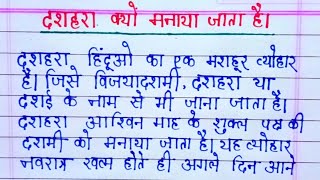 दशहरा क्यों मनाया जाता है।
दशहरा हिंदूओ का एक मशहूर त्योहार
है। जिसे विजयादशमी, दशहरा या
दशई के नाम से भी जाना जाता है।
दशहरा आश्विन माह के शुक्ल पक्ष की
दशमी को मनाया जाता है। यह त्योहार
नवरात्र खत्म होते ही अगले दिन आने